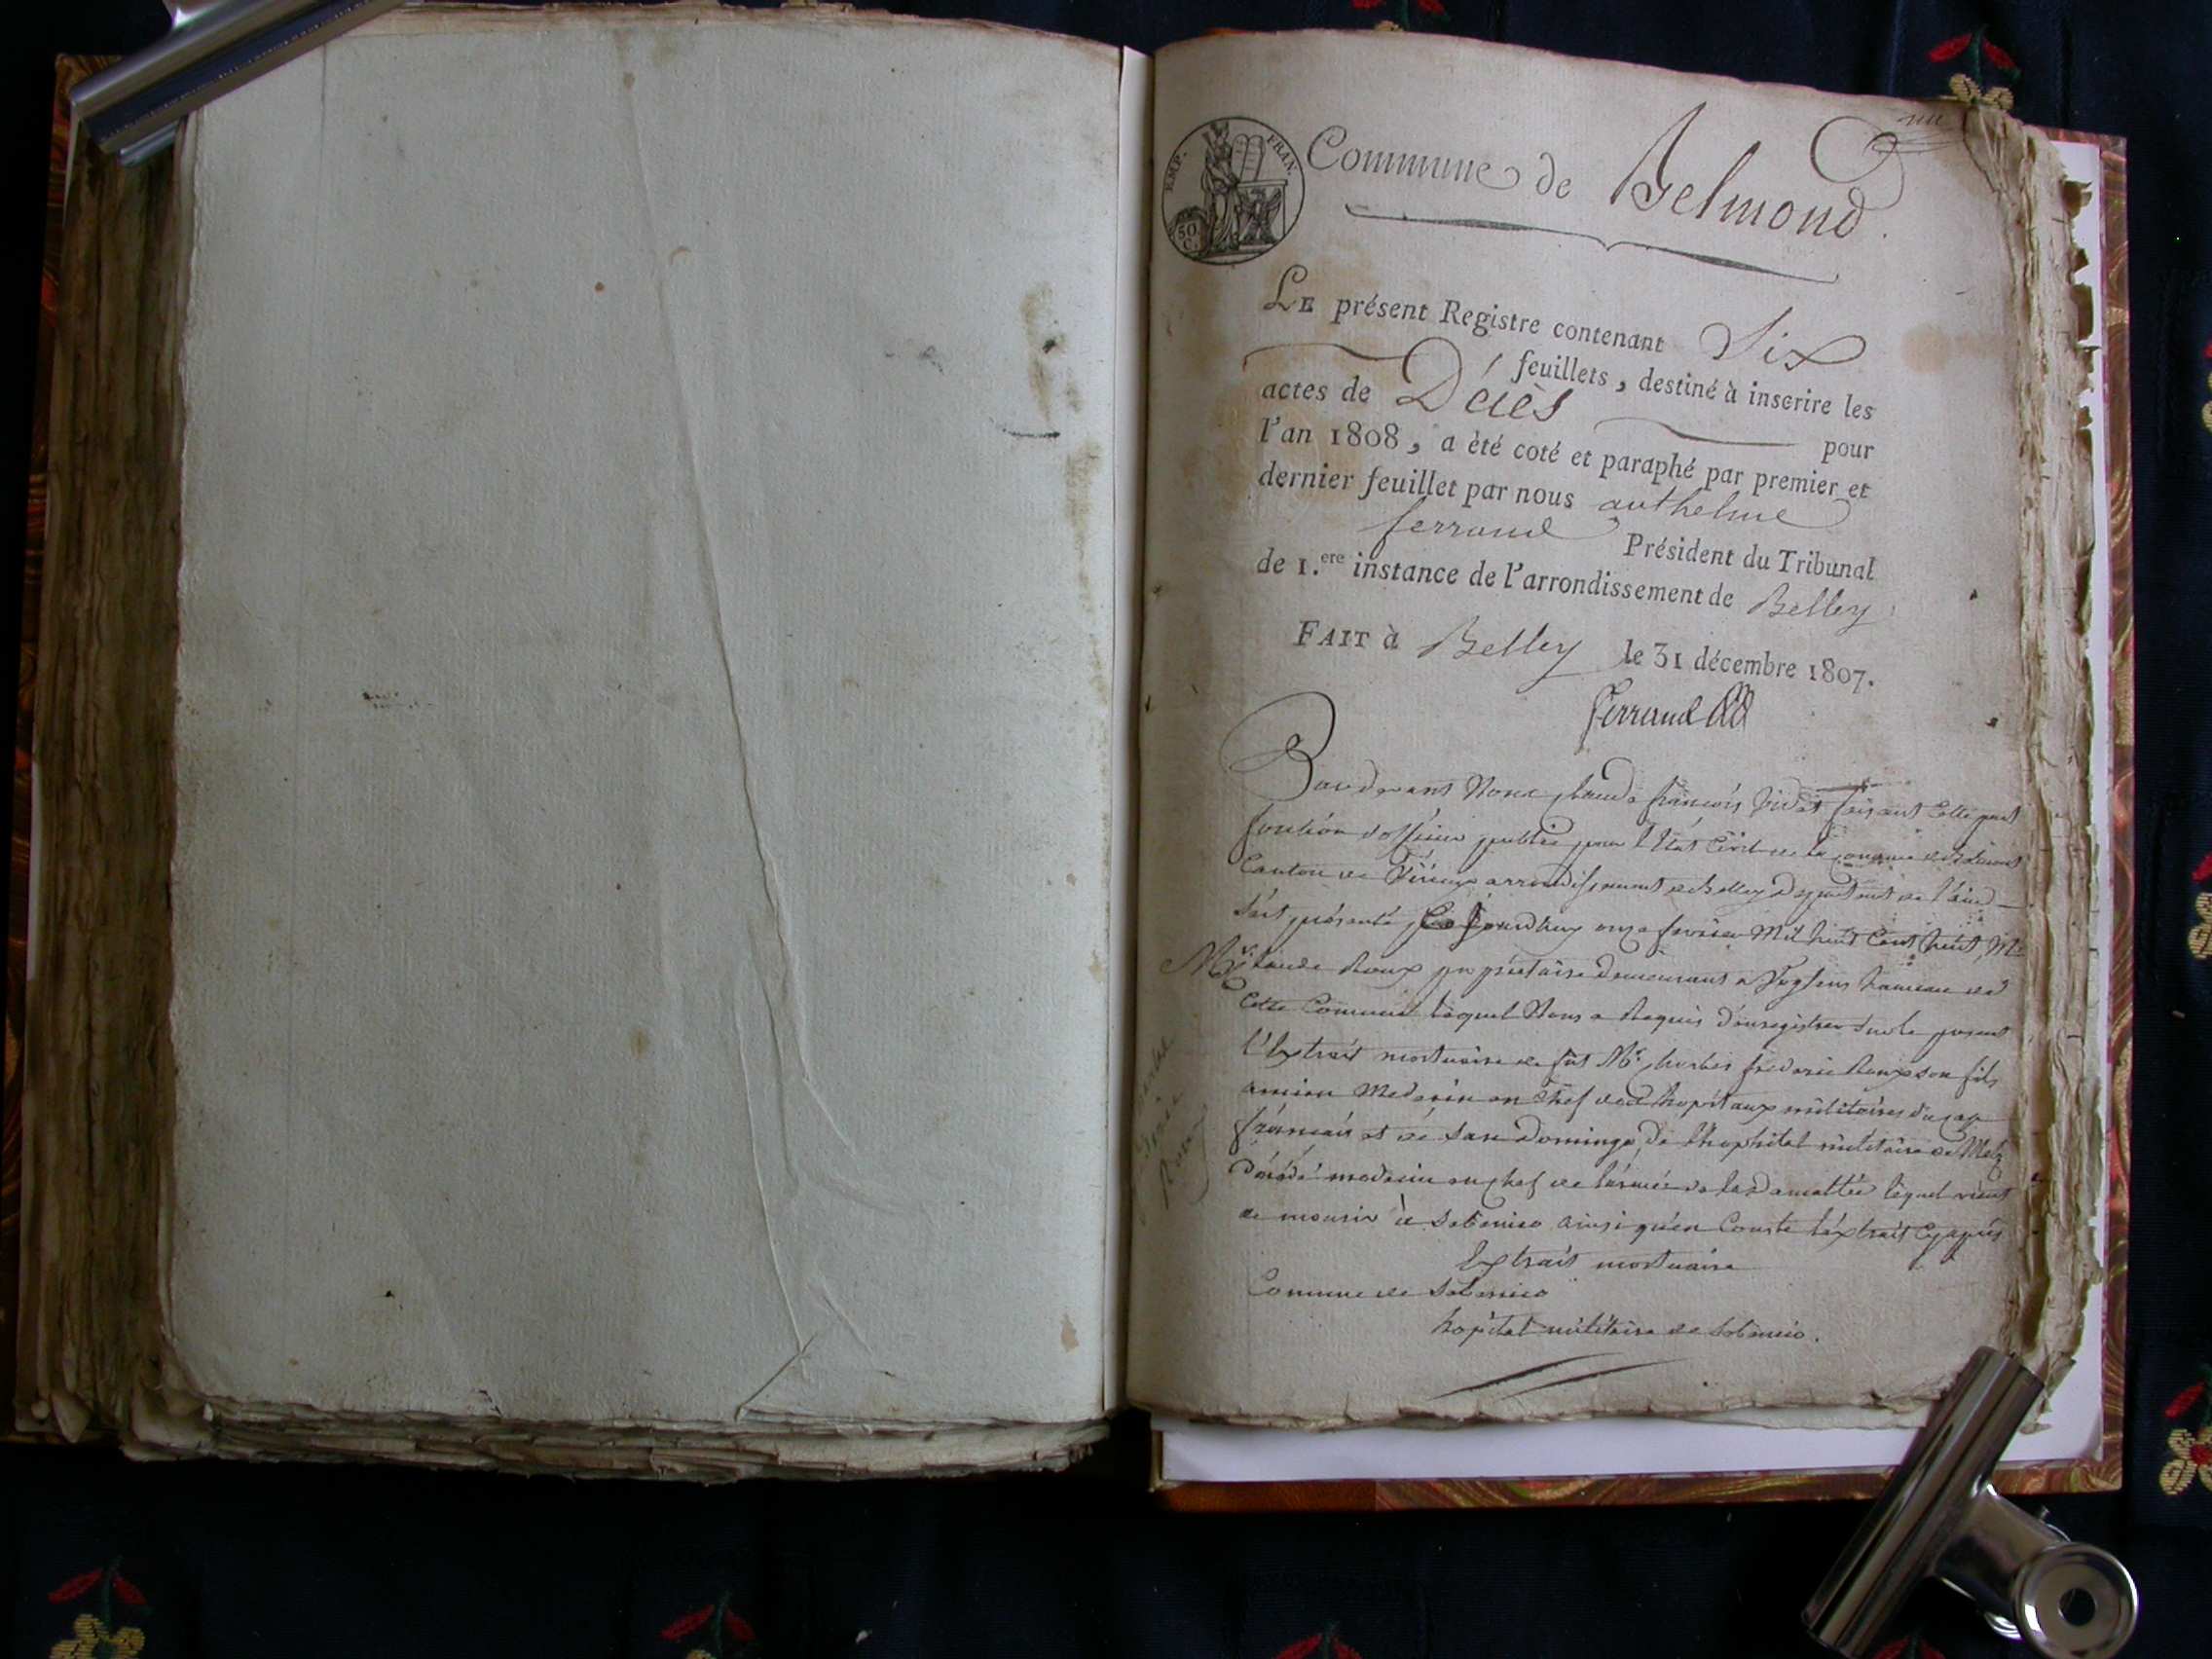 EMP. FRAN.
50 C.
Commune de Belmond.
LE présent Registre contenant Six
feuillets, destiné à inscrire les
actes de Décès pour
l'an 1808, a été coté et paraphé par premier et
dernier feuillet par nous anthelme
ferrand Président du Tribunal
de 1.ere instance de l'arrondissement de Belley
FAIT à Belley le 31 décembre 1807.
ferrand
Pardevant Nous Claude françois faisant
fonction d'officier public pour l'Etat Civil de la Comune de Belmont
Canton de arrondissement de Belley Departement de l'ain
s'est présenté Cejourdhuy onze fevrier Mil huit Cent huit Mr
Claude Roux propriétaire demeurant a hameau de
Cette Commune lequel Nous a Requis d'enregistrer sur le present
l'Extrait mortuaire de fut Mr Charles frederic Roux son fils
ancien Medecin en Chef des hopitaux militaires du cap
français et de Saint Domingo, de l'hophital militaire de Metz
décédé medecin en chef de l'armée de la Damattie lequel vient
de mourir à Sebenico ainsi qu'en Conste l'extrait Cy après
Extrait mortuaire
Comune de Sebenico
hopital militaire de Sebenico.